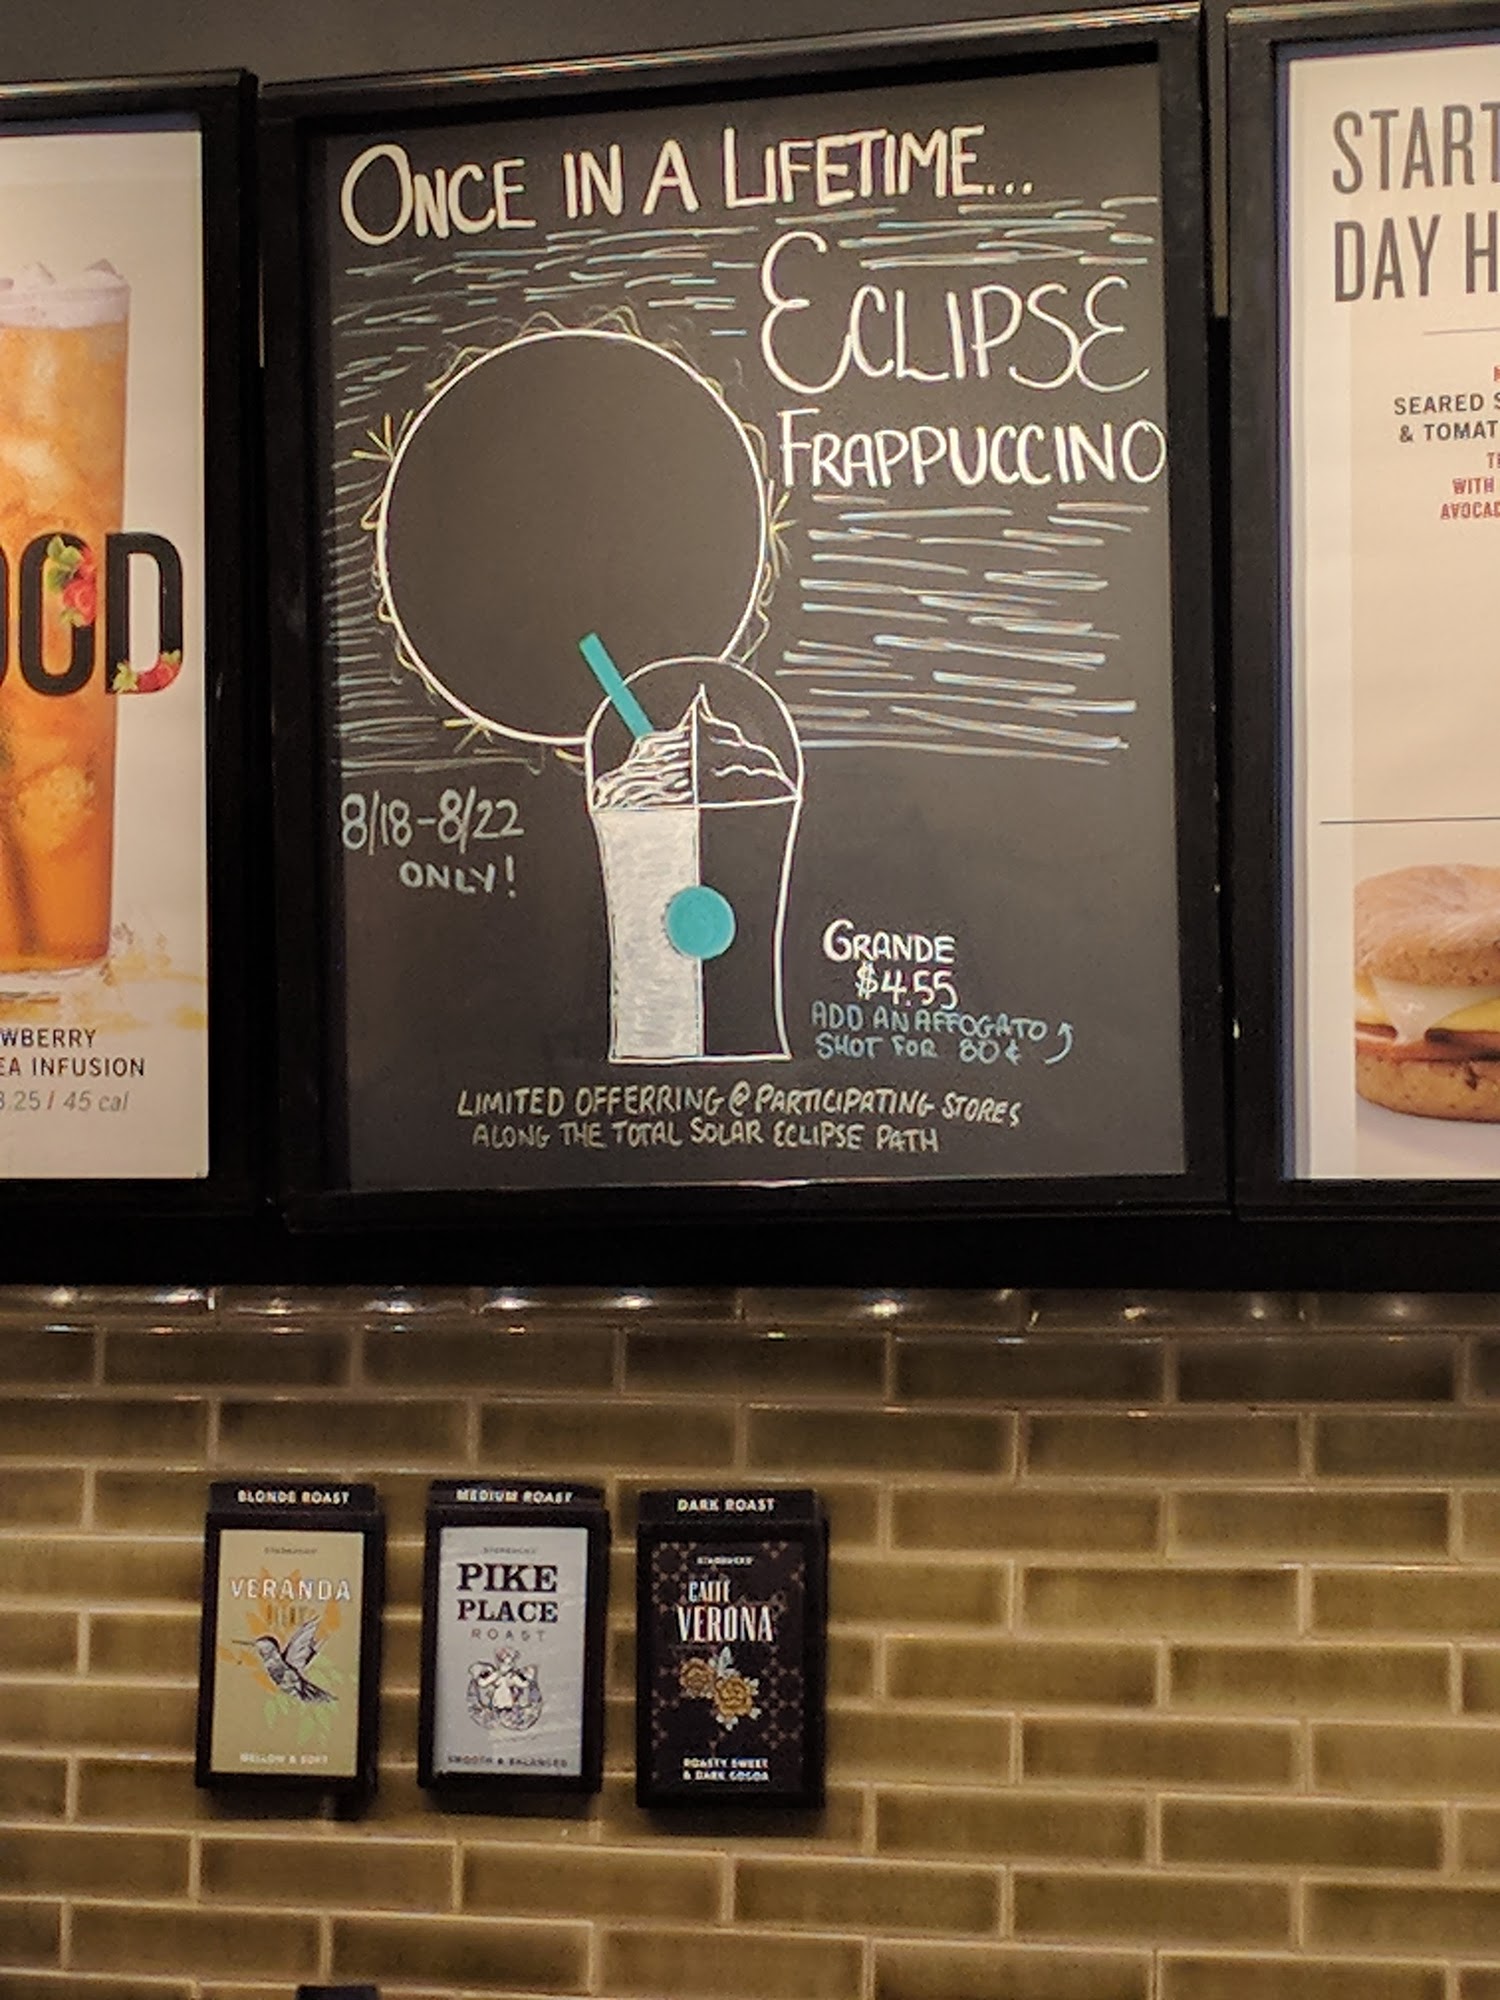 ONCE IN A LIFETIME...
ECLIPSE
FRAPPUCCINO
8/18-8/22
ONLY!
GRANDE
$4.55
ADD AN AFFOGATO
SHOT FOR 80¢
LIMITED OFFERRING @ PARTICIPATING STORES
ALONG THE TOTAL SOLAR ECLIPSE PATH
OOD
WBERRY
EA INFUSION
3.25 / 45 cal
START
DAY H
SEARED S
& TOMAT
WITH
AVOCAD
BLONDE ROAST
STARBUCKS
VERANDA
MELLOW & SOFT
MEDIUM ROAST
STARBUCKS
PIKE
PLACE
ROAST
SMOOTH & BALANCED
DARK ROAST
STARBUCKS
CAFFÈ
VERONA
ROASTY SWEET
& DARK COCOA